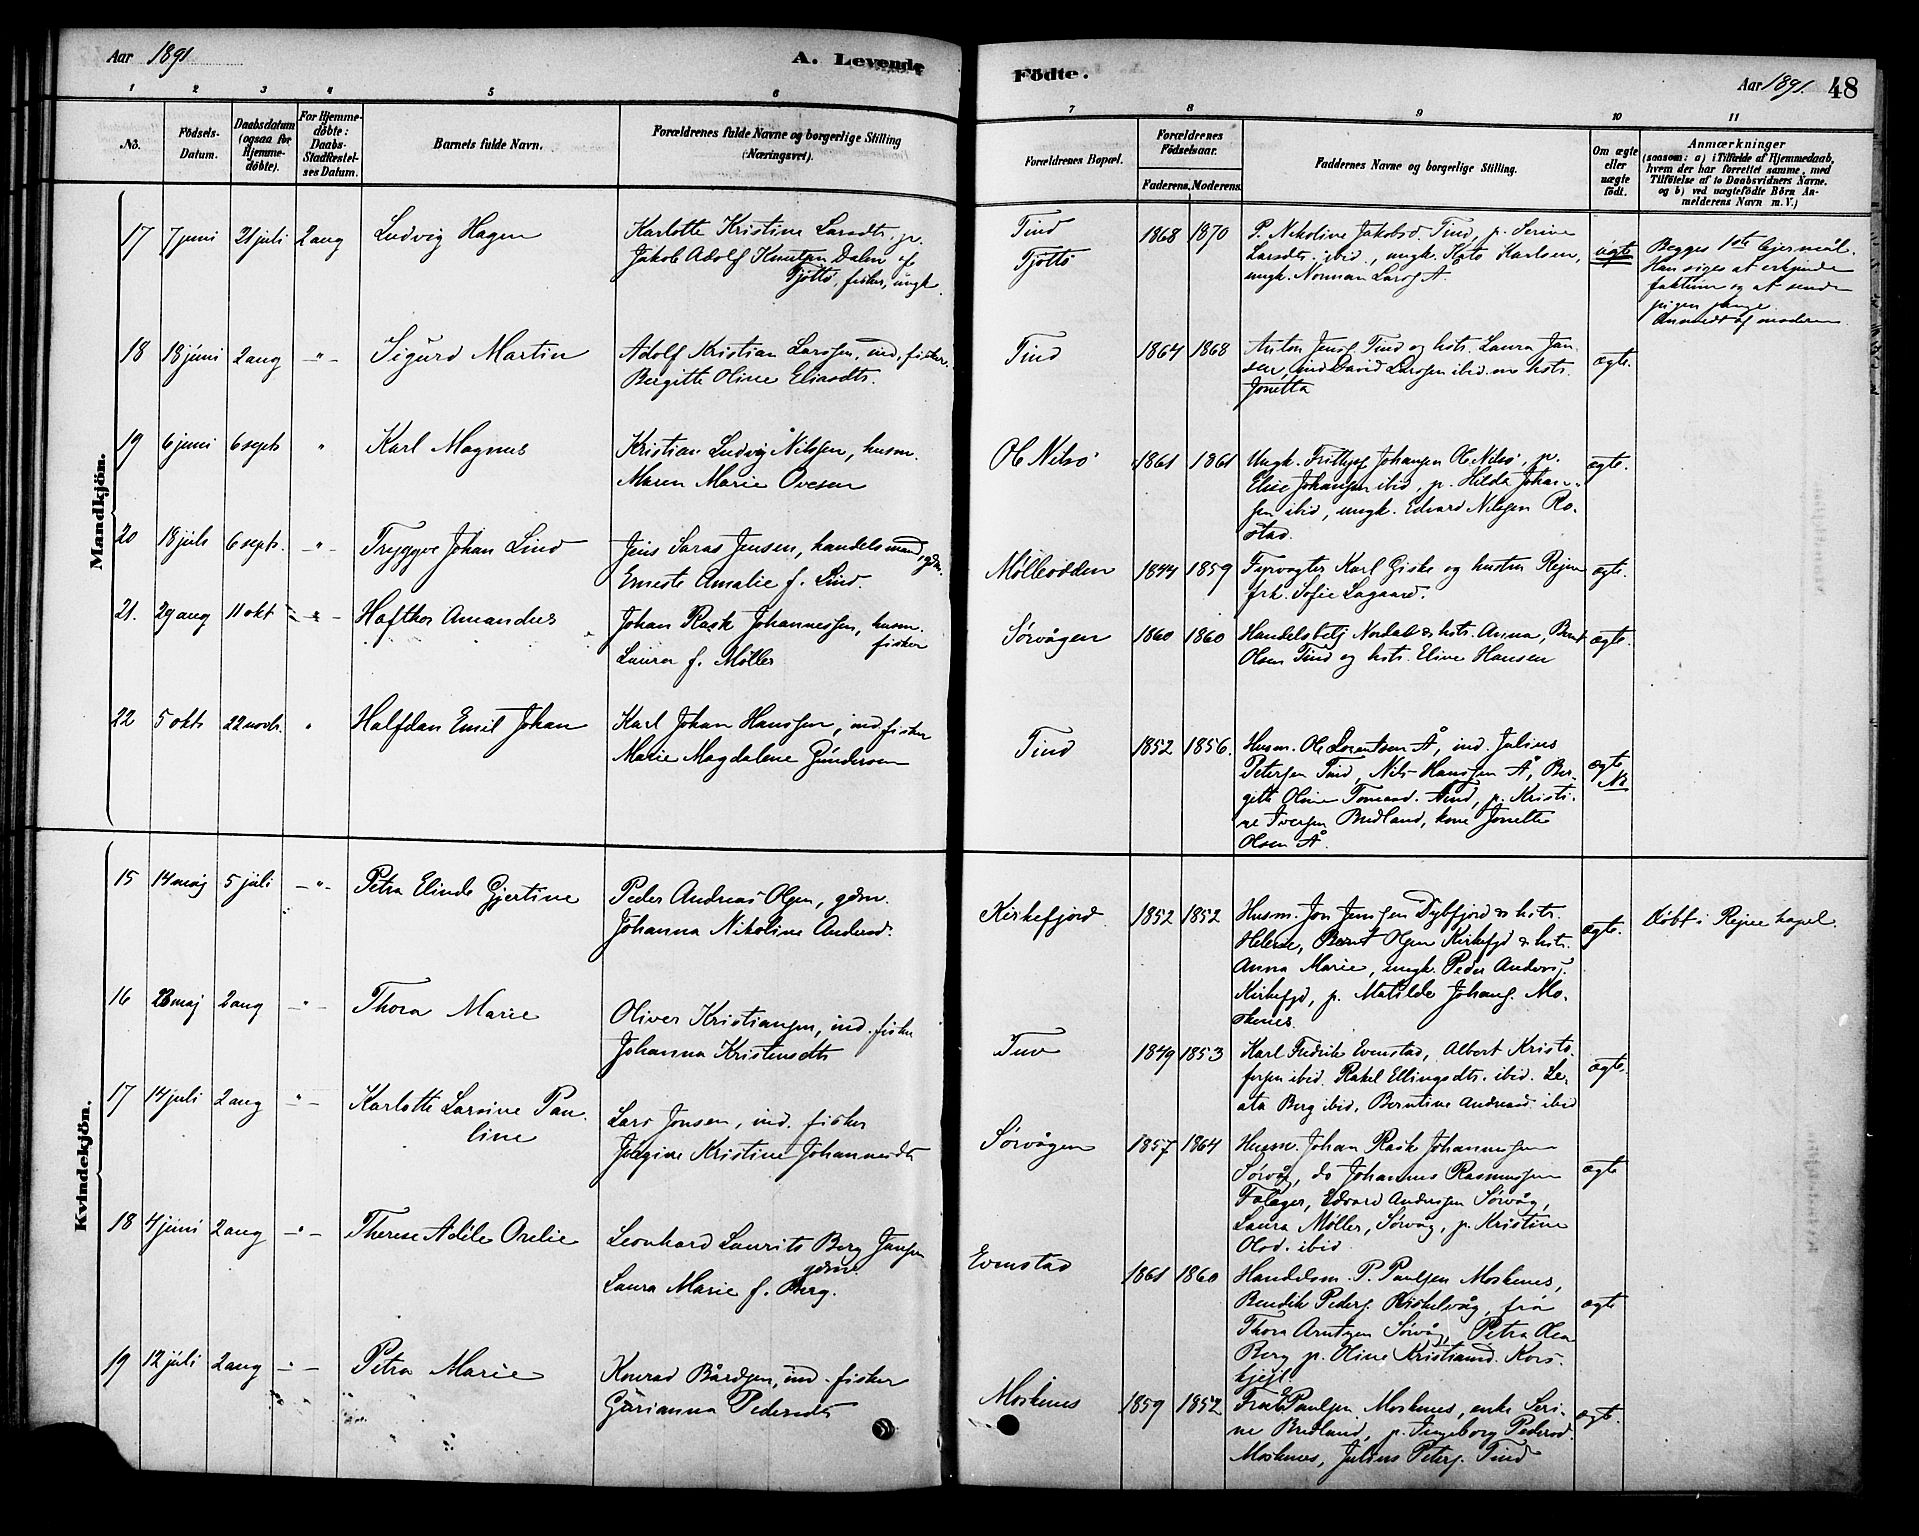 Aar 1891
A. Levende
Födte.
Aar 1891.
48
1 2 3 4 5 6 7 8 9 10 11
No.
Födsels-Datum.
Daabsdatum (ogsaa for Hjemmedöbte).
For Hjemmedöbte: Daabs-Stadfæstelses Datum.
Barnets fulde Navn.
Forældrenes fulde Navne og borgerlige Stilling
(Næringsvei).
Forældrenes Bopæl.
Forældrenes Födselsaar.
Faderens. Moderens.
Faddernes Navne og borgerlige Stilling.
Om ægte eller uægte födt.
Anmærkninger
(saasom: a) i Tilfælde af Hjemmedaab,
hvem der har forrettet samme, med
Tilföielse af to Daabsvidners Navne.
og b) ved uægtefödte Börn An-
melderens Navn m. V.)
Mandkjön.
17 7 juni 21 juli 2 aug Ludvig Hagen
Karlotte Kristine Larsdtr. p.
Jakob Adolf Knutsen Dalen af
Tjöttö, fisker, ungk.
Tind
Tjöttö
1868 1870
P. Nikoline Jakobsd. Tind, p. Serine
Larsdtr. ibid., ungk. Kato Karlsen,
ungk. Norman Larss Å.
uægte
Begges 1ste leiermål.
Han siges at erkjende
faktum og at sende
pigen penge.
Anmeldt af moderen
18 18 juni 2 aug -"- Sigurd Martin
Adolf Kristian Larssen, ind. fisker.
Bergitte Oline Eliasdtr.
Tind
1864 1868
Anton Jenss Tind og hstr. Laura Jan-
sen, ind David Larssen ibid. m hstr.
Jonetta
ægte.
19 6 juni 6 septr " Karl Magnus
Kristian Ludvig Nilssen, husm.
Maren Marie Ovesen
Ol Nilsö
1861 1861
Ungk. Frithjof Johansen Ol Nilsö, p.
Elise Johansen ibid, p. Hilda Johan-
sen ibid, ungk. Edvard Nilssen Ro-
stad.
ægte.
20 18 juli 6 septr. -"- Tryggve Johan Lind
Jens Saras Jensen, handelsmand, gdm.
Erneste Amalie f. Lind.
Mølleodden
1844 1859
Fyrvogter Karl Giske og hustru Reine
frk. Sofie Lagaard.
ægte.
21. 29 aug 11 okt -"- Hafthor Amandus
Johan Rask Johannessen, husm.
fisker
Laura f. Møller
Sørvågen
1860 1860
Handelsbetj Nordal & hstr. Anna, Bernt
Olsen Tind og hstr. Eline Hansen
ægte.
22 5 oktr 22 novbr. " Halfdan Emil Johan
Karl Johan Hanssen, ind. fisker
Marie Magdalene Gundersen
Tind
1852 1856.
Husm. Ole Lorentsen Å, ind. Julius
Petersen Tind, Nils Hanssen Å, Ber-
gitte Oline Tomasd. Tind, p. Kristi-
ne Iversen Bredland, kone Jonette
Olsen Å.
ægte
Nb
Kvindekjön.
15 14 maj 5 juli -"- Petra Elinde Gjertine
Peder Andreas Olsen, gdm.
Johanna Nikoline Andersd.
Kirkefjord
1852 1852
Husm. Jon Jenssen Dybfjord & hstr.
Helene, Bernt Olsen Kirkefjd & hstr.
Anna Marie, ungk. Peder Anders.
Kirkefjd, p. Matilde Johans. Mo-
skenes.
ægte.
Döbt i Reine kapel.
16 28 maj 2 aug -"- Thora Marie
Oliver Kristiansen, ind. fisker
Johanna Kristensdtr
Tuv
1849 1853
Karl Fredrik Evenstad, Albert Kristo-
fersen ibid. Rakel Ellingsdtr. ibid. Le-
ata Berg ibid, Berntine Andreasd. ibid
ægte.
17 14 juli 2 aug -"- Karlotte Larsine Pau-
line
Lars Jonsen, ind. fisker
Jørgine Kristine Johannesdtr
Sørvågen
1857 1864
Husm. Johan Rask Johannessen
Sørvåg, do Johannes Rasmussen
Edvard Anderssen Sørvåg,
Laura Møller, Sørvåg, p. Kristine
Olsd. ibid
ægte
18 4 juni 2 aug -"- Therese Adele Orelie
Leonhard Laurits Berg Jansen
gdm.
Laura Marie f. Berg.
Evenstad
1861 1860
Handelsm. P. Paulsen Moskenes,
Bendik Peders. fra
Thora Arntzen Sørvåg, Petra Olea
Berg p. Oline Kristiansd. Kors-
hjell.
ægte
19 12 juli 2 aug -"- Petra Marie
Konrad Bårdsen, ind. fisker
Gurianna Pedersdtr
Moskenes
1859 1852
Paulsen Moskenes, enke Seri-
ne Bredland, p. Ingeborg Pedersd.
Moskenes, Julius Peters. Tind
ægte.